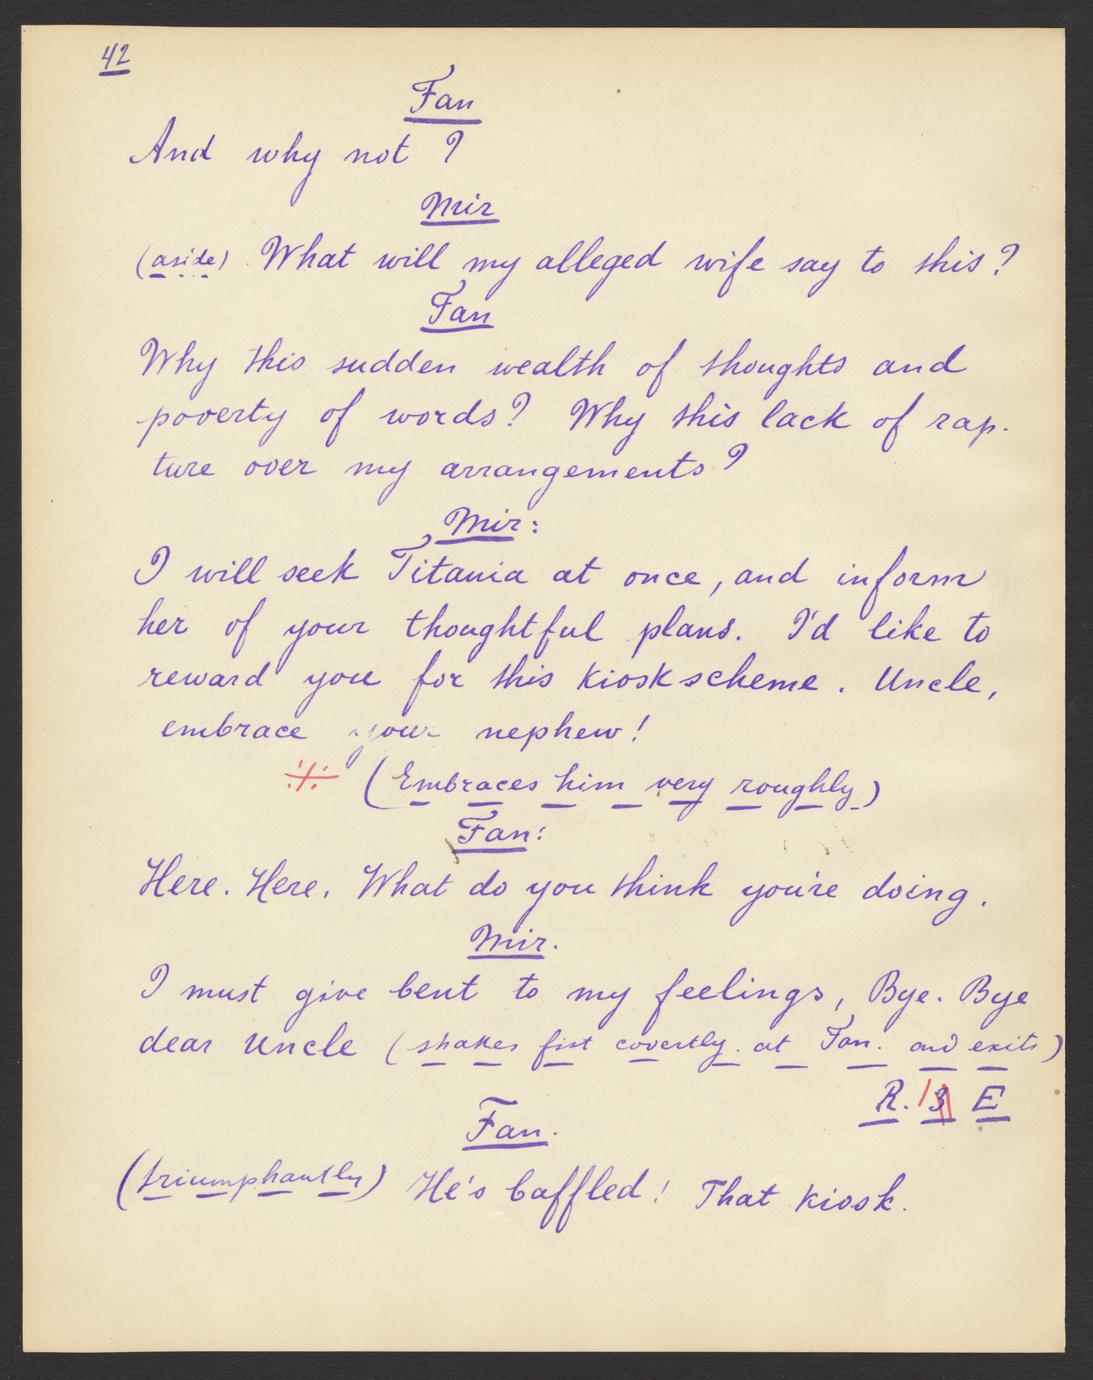 42
Fan
And why not ?
Mir
(aside) What will my alleged wife say to this?
Fan
Why this sudden wealth of thoughts and
poverty of words? Why this lack of rap-
ture over my arrangements?
Mir:
I will seek Titania at once, and inform
her of your thoughtful plans. I'd like to
reward you for this kiosk scheme. Uncle,
embrace your nephew!
(Embraces him very roughly)
Fan:
Here. Here. What do you think you're doing.
Mir.
I must give bent to my feelings, Bye. Bye
dear Uncle (shakes fist covertly at Fan. and exits)
R. 3 E
Fan.
(triumphantly) He's baffled! That kiosk.